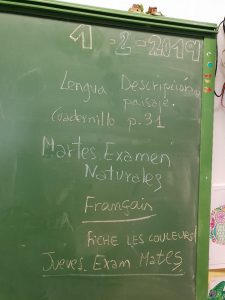 1-2-2019
Lengua Descripción
paisaje.
Cuadernillo p.31
Martes. Examen
Naturales
Français
FICHE LES COULEURS
Jueves. Exam Mates